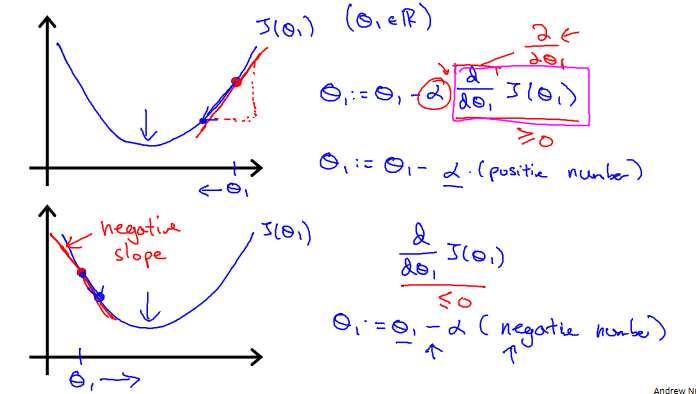 J(θ₁) (θ₁ ∈ ℝ)
∂/∂θ₁ ←
θ₁ := θ₁ - α d/dθ₁ J(θ₁)
≥ 0
θ₁ := θ₁ - α · (positive number)
← θ₁
negative
slope
J(θ₁)
d/dθ₁ J(θ₁)
≤ 0
θ₁ := θ₁ - α (negative number)
θ₁ →
Andrew N